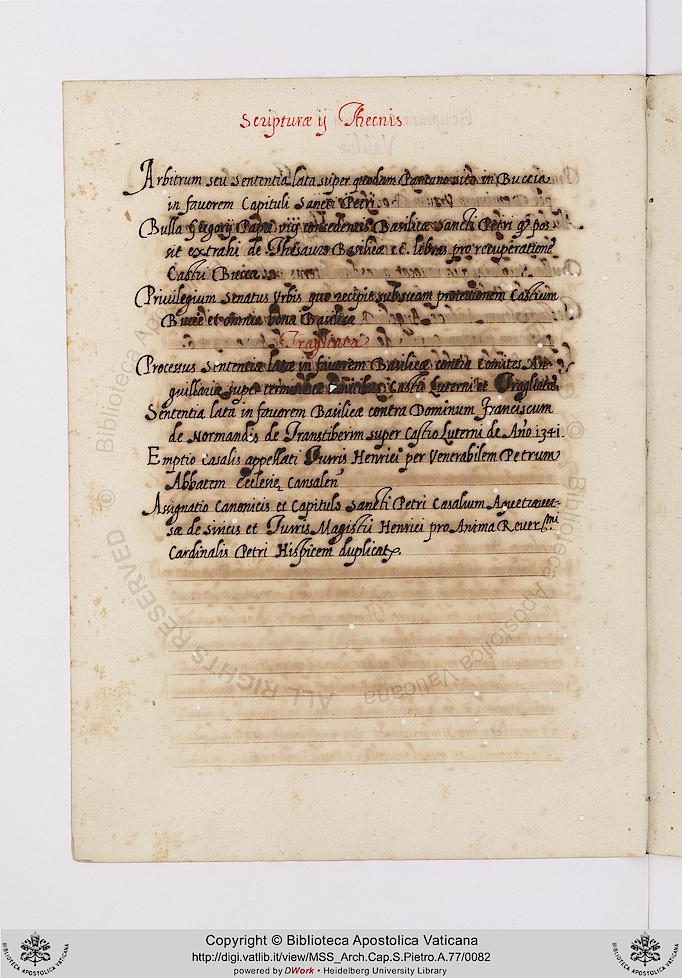 Scripturæ ij Thecnis
Arbitrum seu Sententia lata super quodam Pantano sito in Buccia
in favorem Capituli Sancti Petri
Bulla Gregorij Papæ viij concedentis Basilicæ Sancti Petri q pos
sit extrahi de Thesauro Basilicæ libras pro recuperatione
Castri Buceæ
Privilegium Senatus Urbis quo recipit sub suam protectionem Castrum
Buceæ et omnia bona Basilicæ
Tragliata
Processus Sententiæ latæ in favorem Basilicæ contra Comites An-
guillariæ super Castri Luterni et Tragliatæ
Sententia lata in favorem Basilicæ contra Dominum Franciscum
de Normandis de Transtiberim super Castro Luterni de Año 1341.
Emptio Casalis appellati Turris Henrici per Venerabilem Petrum
Abbatem Ecclesie
Assignatio Canonicis et Capitulo Sancti Petri Casalium
sæ de Sincis et Turris Magistri Henrici pro Anima Rever.mi
Cardinalis Petri Hispicem duplicat
© Biblioteca Apostolica Vaticana
ALL RIGHTS RESERVED
Copyright © Biblioteca Apostolica Vaticana
http://digi.vatlib.it/view/MSS_Arch.Cap.S.Pietro.A.77/0082
powered by DWork • Heidelberg University Library